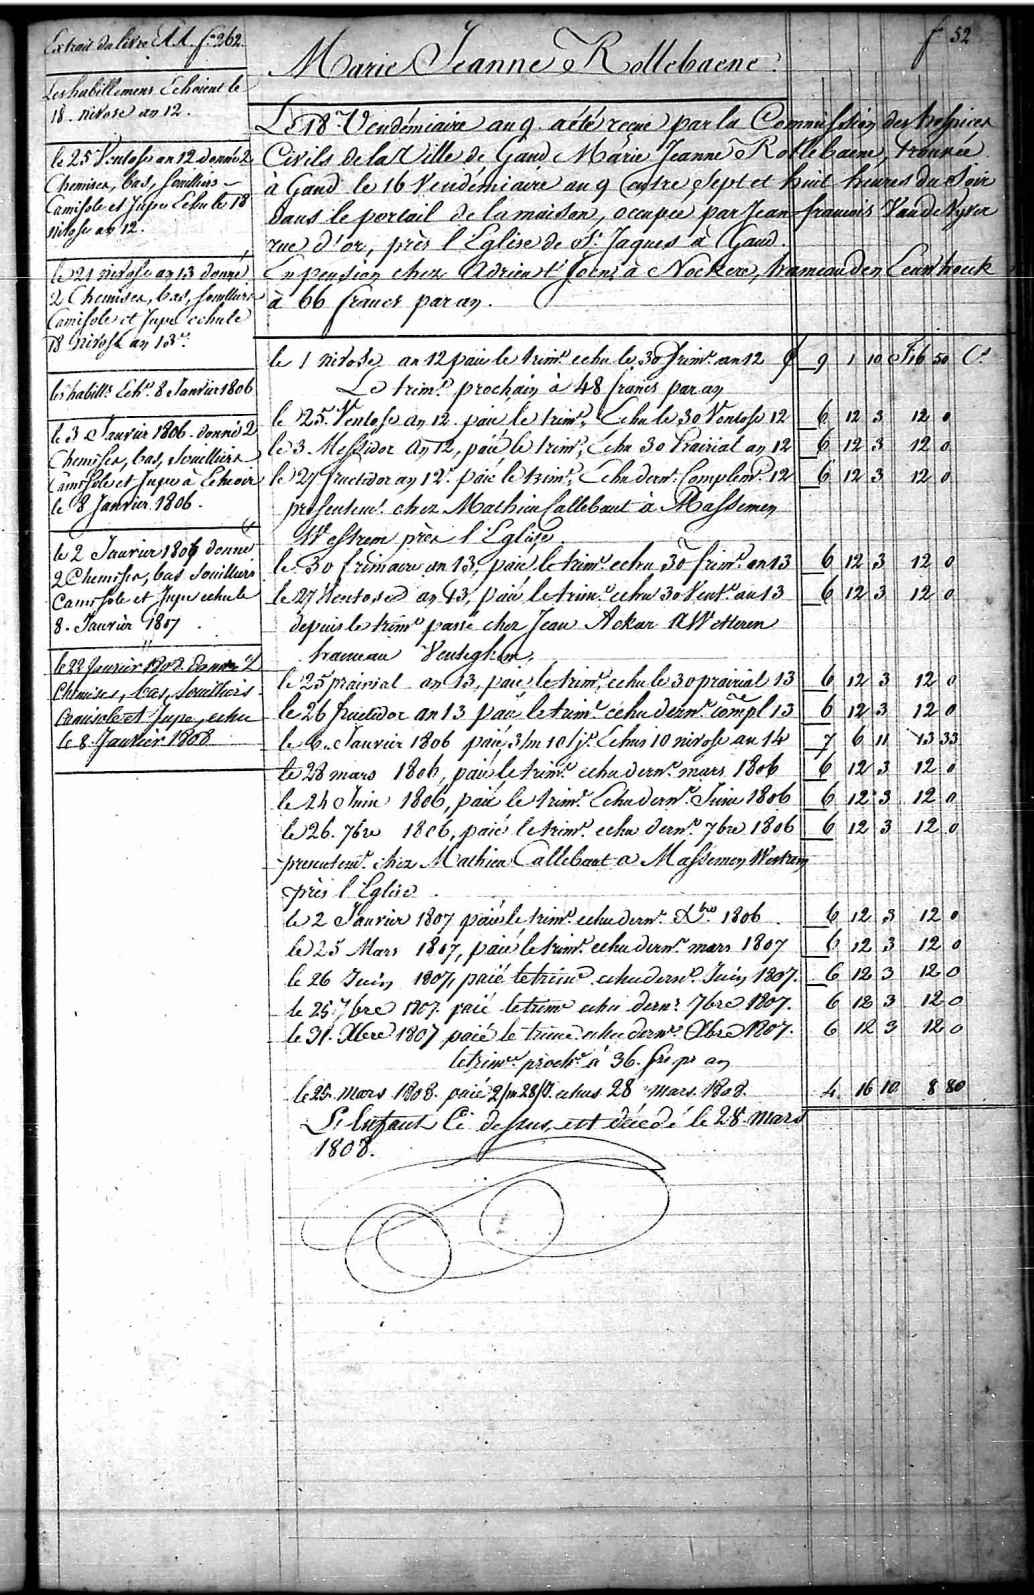 Extrait du livre AA. f.o 262
Les habillemens Echoient le
18. nivose an 12.
le 25 Ventose an 12 donné 2
Chemises, bas, souilliers
Camisole et Jupe Echu le 18
nivose an 12.
le 21 nivose an 13 donné
2 Chemises, bas, souilliers
Camisole et Jupe echu le
18 nivose an 13.
les habillts. Echt. 8 Janvier 1806
le 3 Janvier 1806. donné 2
Chemises, bas, souilliers
Camisole et Jupe à Echeoir
le 8 Janvier 1806.
le 2 Janvier 1807 donné
2 Chemises, bas souilliers
Camisole et Jupe echu le
8. Janvier 1807.
le 22 Janvier 1808. donné 2
Chemises, bas, souilliers
Camisole et Jupe, echu
le 8. Janvier 1808
f 52
Marie Jeanne Rollebaene.
Le 18 Vendémiaire an 9. a été reçue par la Commission des hospices
Civils de la Ville de Gand Marie Jeanne Rollebaene, trouvée
à Gand le 16 Vendémiaire an 9 entre sept et huit heures du soir
dans le portail de la maison, occupée par Jean francois Van de Vyver
rue d'or, près l'Eglise de St. Jaques à Gand.
En pension chez Adrien t'Joens à Nockere, hameau den Eeunhouck
à 66 francs par an.
le 1 nivose an 12 paié le trimre. echu le 30 frimre. an 12 £ 9 1 10 F 16 50 Cs
Le trimre. prochain à 48 francs par an
le 25 Ventose an 12. paié le trimre. Echu le 30 Ventose 12 6 12 3 12 0
le 3 Messidor an 12, paié le trimre. Echu 30 Prairial an 12 6 12 3 12 0
le 27 fructidor an 12. paié le trimre. Echu dernr. Complemre. 12 6 12 3 12 0
presentemt. chez Mathieu Callebaut à Massemen
Westrem près l'Eglise.
le 30 frimaire an 13, paié le trimre. echu 30 frimre. an 13 6 12 3 12 0
le 27 Ventose an 13, paié le trimre. echu 30 Vente. an 13 6 12 3 12 0
depuis le trimre passé chez Jean Ackar a Wetteren
hameau Venteghem,
le 25 prairial an 13, paié le trimre. echu le 30 prairial 13 6 12 3 12 0
le 26 fructidor an 13 paié le trimre. echu dernr. compl 13 6 12 3 12 0
le 6. Janvier 1806 paié 3/m 10/js. Echus 10 nivose an 14 7 6 11 13 33
le 28 mars 1806, paié le trimre. echu dernr. mars 1806 6 12 3 12 0
le 24 Juin 1806, paié le trimre. Echu dernr. Juin 1806 6 12 3 12 0
le 26. 7bre 1806, paié le trimre. echu dernr. 7bre 1806 6 12 3 12 0
presentemt. chez Mathieu Callebaut a Massemen Westrem
près l'Eglise
le 2 Janvier 1807 paié le trimre. echu dernr. Xbre 1806 6 12 3 12 0
le 25 Mars 1807, paié le trimre. echu dernr. mars 1807 6 12 3 12 0
le 26 Juin 1807, paié le trimre echu dernr. Juin 1807. 6 12 3 12 0
le 25 7bre 1807. paié le trimre echu dernr. 7bre 1807. 6 12 3 12 0
le 31. Xbre 1807 paié le trimre echu dernr. Xbre 1807. 6 12 3 12 0
le trimre. prochn. à 36. frs pr an
le 25. mars 1808. paié 2/m 28/js. echus 28 mars 1808. 4 16 10 8 80
L'Enfant Ci dessus, est décédé le 28. mars
1808.